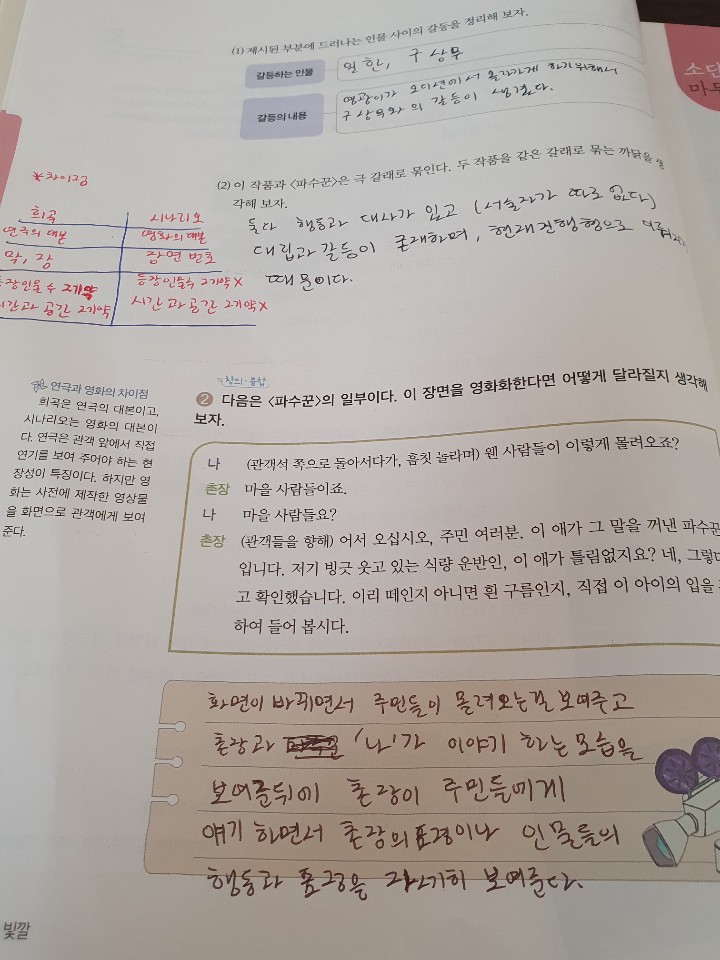 (1) 제시된 부분에 드러나는 인물 사이의 갈등을 정리해 보자.
갈등하는 인물
일한, 구 상무
갈등의 내용
영광이가 오디션에서 올라가게 하기위해서
구상무와의 갈등이 생겼다.
소단
마무
(2) 이 작품과 <파수꾼>은 극 갈래로 묶인다. 두 작품을 같은 갈래로 묶는 까닭을 생
각해 보자.
둘다 행동과 대사가 있고 (서술자가 따로 없다)
대립과 갈등이 존재하며, 현재진행형으로
때문이다.
*차이점
희곡 시나리오
연극의 대본 영화의 대본
막, 장 장면 번호
등장인물 수 제약 등장인물수 제약 X
시간과 공간 제약 시간과 공간 제약 X
연극과 영화의 차이점
희곡은 연극의 대본이고,
시나리오는 영화의 대본이
다. 연극은 관객 앞에서 직접
연기를 보여 주어야 하는 현
장성이 특징이다. 하지만 영
화는 사전에 제작한 영상물
을 화면으로 관객에게 보여
준다.
창의·융합
2 다음은 <파수꾼>의 일부이다. 이 장면을 영화화한다면 어떻게 달라질지 생각해
보자.
나 (관객석 쪽으로 돌아서다가, 흠칫 놀라며) 웬 사람들이 이렇게 몰려오죠?
촌장 마을 사람들이죠.
나 마을 사람들요?
촌장 (관객들을 향해) 어서 오십시오, 주민 여러분. 이 애가 그 말을 꺼낸 파수꾼
입니다. 저기 빙긋 웃고 있는 식량 운반인, 이 애가 틀림없지요? 네, 그렇다
고 확인했습니다. 이리 떼인지 아니면 흰 구름인지, 직접 이 아이의 입을
하여 들어 봅시다.
화면이 바뀌면서 주민들이 몰려오는걸 보여주고
촌장과 '나'가 이야기 하는 모습을
보여준뒤에 촌장이 주민들에게
얘기 하면서 촌장의 표정이나 인물들의
행동과 표정을 자세히 보여준다.
빛깔